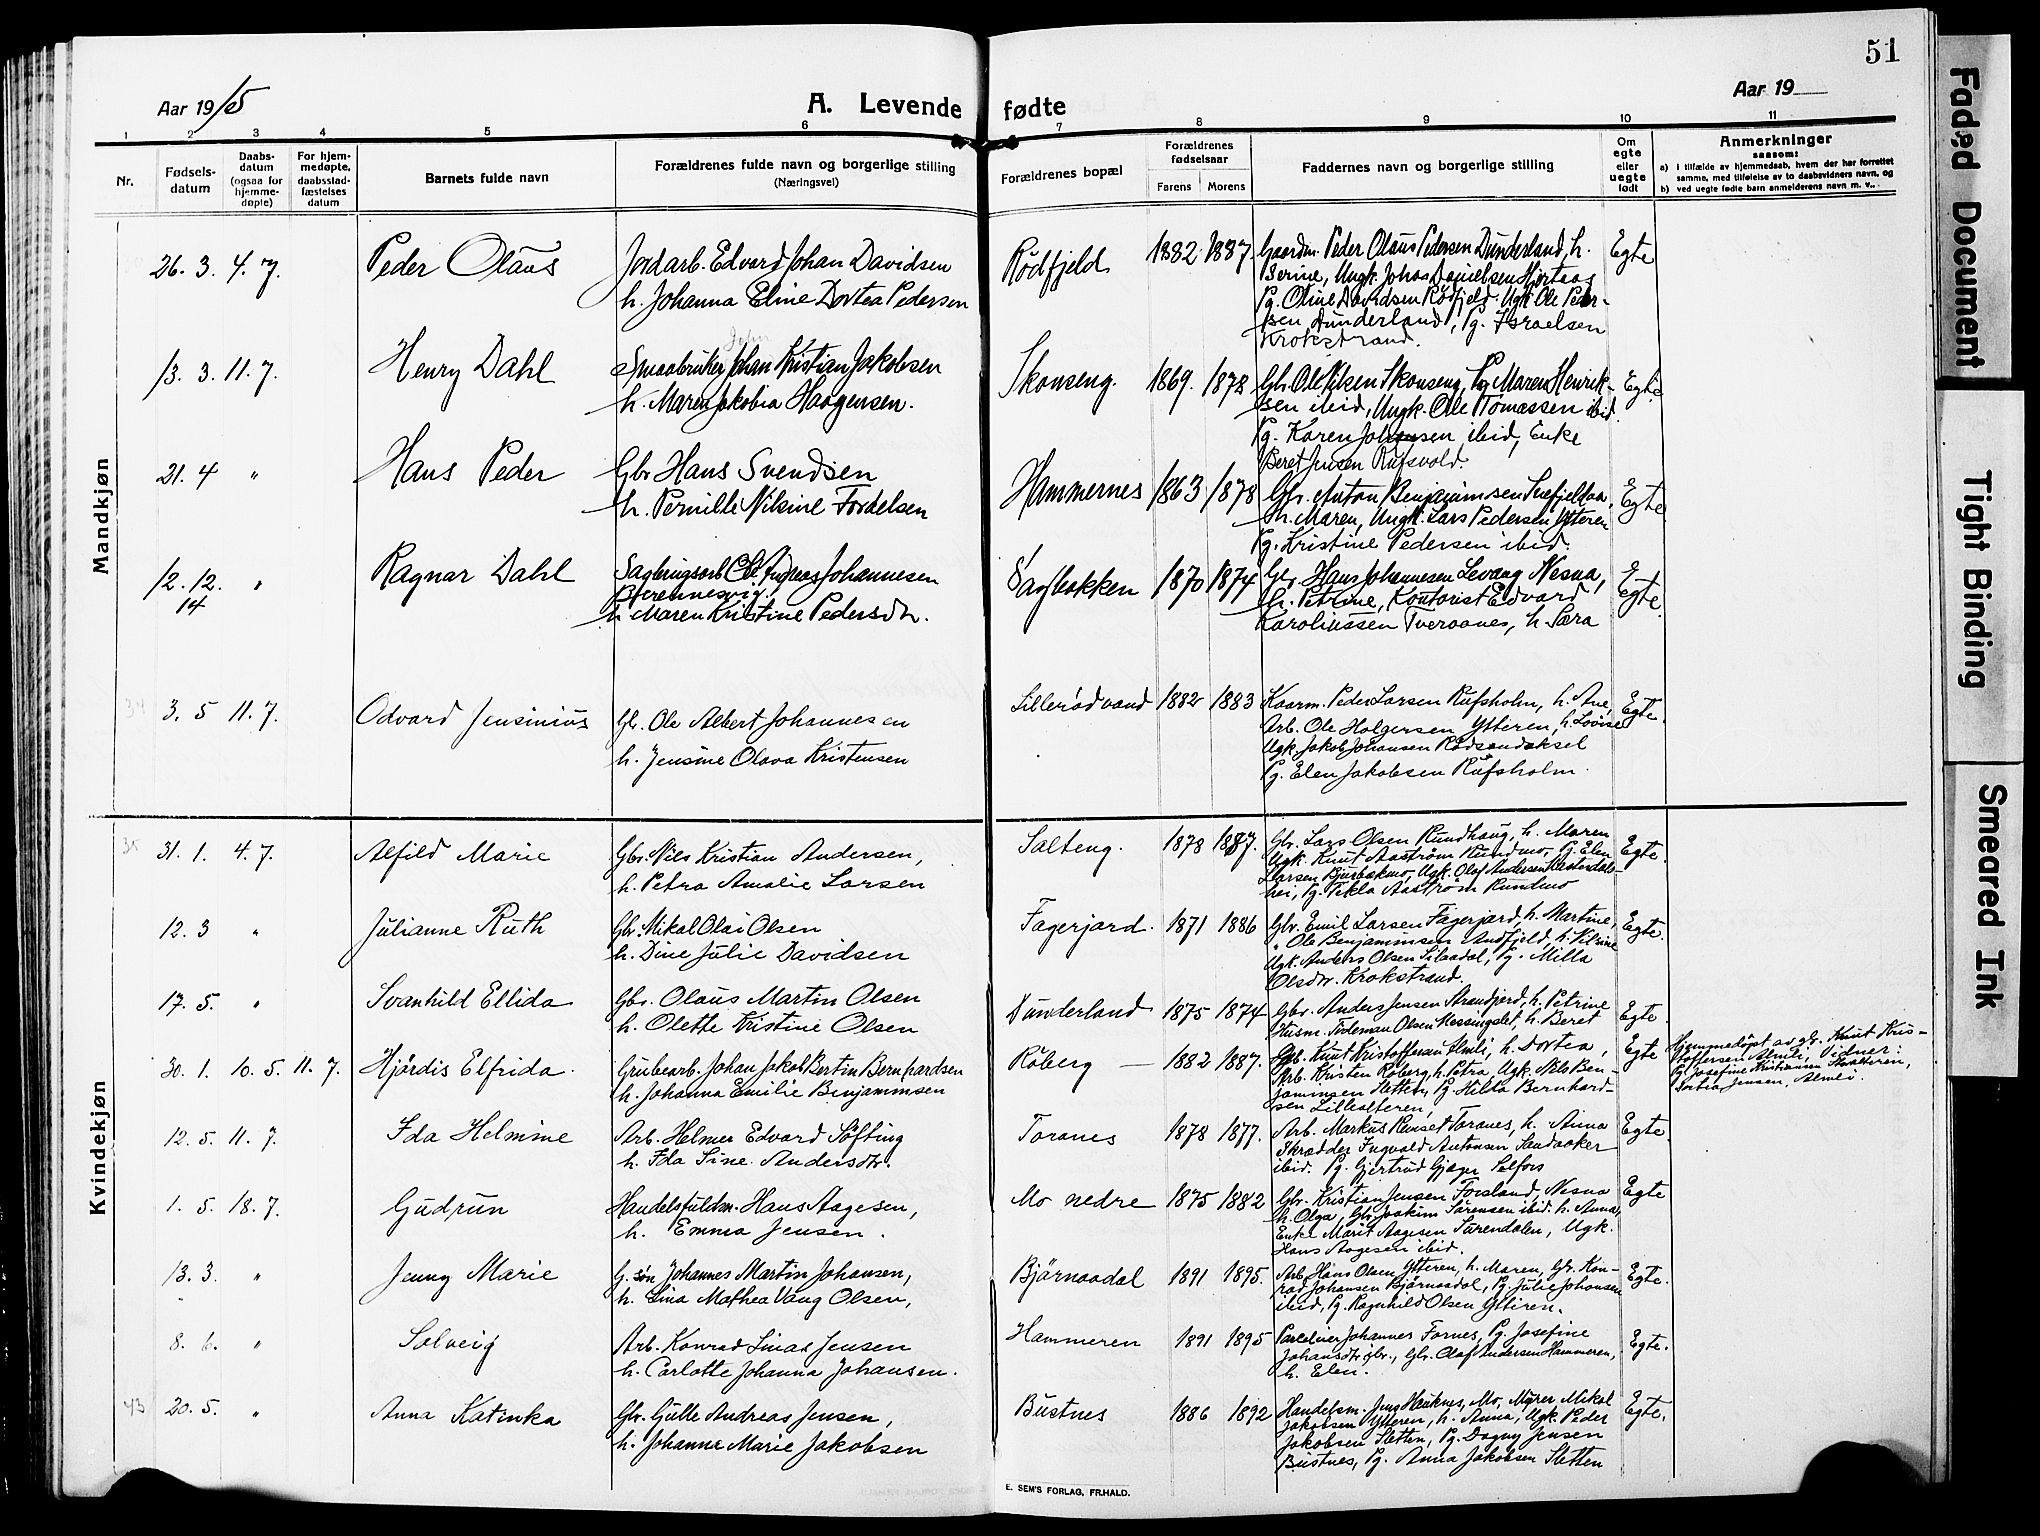 51
Aar 1915
A. Levende fødte
Aar 19
1 2 3 4 5 6 7 8 9 10 11
Nr.
Fødsels-
datum
Daabs-
datum
(ogsaa for
hjemme-
døpte)
For hjem-
medøpte,
daabsstad-
fæstelses
datum
Barnets fulde navn
Forældrenes fulde navn og borgerlige stilling
(Næringsvei)
Forældrenes bopæl
Forældrenes
fødselsaar
Farens Morens
Faddernes navn og borgerlige stilling
Om
egte
eller
uegte
født
Anmerkninger
saasom:
a) i tilfælde av hjemmedaab, hvem der har forrettet
samme, med tilføielse av to daabsvidners navn, og
b) ved uegte fødte barn anmelderens navn m. v..
Mandkjøn
26. 3. 4. 7. Peder Olaus
Jordarb. Edvard Johan Davidsen
h. Johanna Eline Dortea Pedersen
Rödfjeld 1882 1887.
Gaardm. Peder Olaus Pedersen Dunderland, h.
Berine, Ungk. Johas Danielsen Hjortaas
Pg. Oline Davidsen Rödfjeld. Ugk. Ole Peder-
sen Dunderland, Pg. Israelsen
Krokstrand.
Egte
13. 3. 11. 7. Henry Dahl
Smaabruker Johan Kristian Jakobsen
h. Maren Jakobia Haagensen.
Skonseng. 1869. 1878
Gbr. Ole Nilsen Skonseng, Pg. Maren Henrik-
sen ibid, Ungk. Ole Tomassen ibid.
Pg. Karen Johansen ibid, Enke
Beret Jensen Rufsvold.
Egte.
21. 4 " Hans Peder
Gbr Hans Svendsen
h. Pernille Nikine Fordelsen
Hammernes 1863 1878
Gbr. Anton Benjaminsen
h. Maren, Ungk. Lars Pedersen Ytteren
Pg. Kristine Pedersen ibid.
Egte
12. 12. " Ragnar Dahl
14
Andreas Johannesen
h. Maren Kristine Pedersdtr.
Sagbakken 1870 1874
Gbr. Hans Johannesen Levang Nesna,
h. Petrine, Kontorist Edvard
Karoliussen Tveraanes, h. Sara
Egte.
34 3. 5 11. 7. Odvard Jensinius
Gbr. Ole Albert Johannesen
h. Jensine Olava Kristensen
Lillerødvand 1882 1883
Kaarm. Peder Larsen Rufsholm, h. Ane,
Arb. Ole Holgersen Ytteren, h. Lovise
Ugk. Jakob Johansen Rødsandaksel
Pg. Elen Jakobsen Rufsholm.
Egte.
Kvindekjøn
35 31. 1. 4. 7. Alfild Marie
Gbr. Nils Kristian Andersen,
h. Petra Amalie Larsen
Salteng. 1878 1887.
Gbr. Lars Olsen Rundhaug, h. Maren
Ugk. Knut Aaström Rundmo, Pg. Elen
Larsen Bjurbækmo, Ugk. Olaf Andersen
Pg. Tekla Aaström Rundmo
Egte.
12. 3 " Julianne Ruth
Gbr. Mikal Olai Olsen
h. Dine Julie Davidsen
Fagerjord. 1871 1886
Gbr. Emil Larsen Fagerjord, h. Martine,
" Ole Benjaminsen Andfjeld, h. Nilsine
Ugk. Anders Olsen Silaadal, Pg. Milla
Olsdtr. Krokstrand.
Egte.
17. 5. " Svanhild Ellida
Gbr. Olaus Martin Olsen
h. Olette Kristine Olsen
Dunderland 1875 1874
Gbr. Anders Jensen Strandjord, h. Petrine
Husm. Todeman Olsen Messingslet, h. Beret
Egte.
30. 1. 10. 5. 11. 7. Hjördis Elfrida.
Grubearb. Johan Jakob Bertin Bernhardsen
h. Johanna Emilie Benjaminsen
Röberg 1882 1887.
Gbr. Knut Kristoffersen Almli, h. Dortea,
Arb. Kristen Röberg, h. Petra, Ugk. Nils Ben-
jaminsen Sletten, Pg. Hilda Bernhard-
sen Lillealteren,
Egte
Hjemmedöpt av gbr. Knut Kris-
toffersen Almli, Vidner:
Pg. Josefine Kristiansen
Dortea Jensen, Almli.
12. 5. 11. 7. Ida Helmine
Arb. Helmer Edvard Söfting
h. Ida Sine. Andersdtr.
Toranes 1878 1877.
Arb. Markus Toranes, h. Anna
Skrædder Ingvald Antonsen Sandaaker
ibid. Pg. Gjertrud Gjæger Selfors
Egte.
1. 5. 18. 7. Gudrun
Handelsfuldm. Hans Aagesen,
h. Emma Jensen.
Mo nedre 1875 1882
Gbr. Kristian Jensen Forsland, Nesna
h. Olga, Gbr. Joakim Sörensen ibid. h. Anna,
Enke Marit Aagesen Surendalen, Ugk.
Hans Aagesen ibid.
Egte
13. 3. " Jenny Marie
G. sön Johannes Martin Johansen,
h. Lina Mathea Vang Olsen,
Björnaadal 1891 1895.
Arb. Hans Olsen Ytteren, h. Maren, Gbr. Kon-
rad Johansen Björnaadal, Pg. Julie Johansen
ibid, Pg. Ragnhild Olsen Ytteren.
Egte.
8. 6. " Solveig
Arb. Konrad Linas Jensen
h. Carlotte Johanna Johansen.
Hammeren 1891 1895
Parcelier Johannes Fornes, Pg. Josefine
Johansdtr. Gbr. Olaf Andersen Hammeren,
h. Elen.
Egte.
43 20. 5. " Anna Katinka
Gbr. Gulle Andreas Jensen,
h. Johanna Marie Jakobsen
Bustnes 1886 1892
Handelsm. Jens Hauknes, Mo, Murer Mikal
Jakobsen Ytteren, h. Anna, Ugk. Peder
Jakobsen Sletten, Pg. Dagny Jensen
Bustnes, Pg. Anna Jakobsen Sletten
Egte.
E. SEM'S FORLAG, FR.HALD.
Faded Document
Tight Binding
Smeared Ink